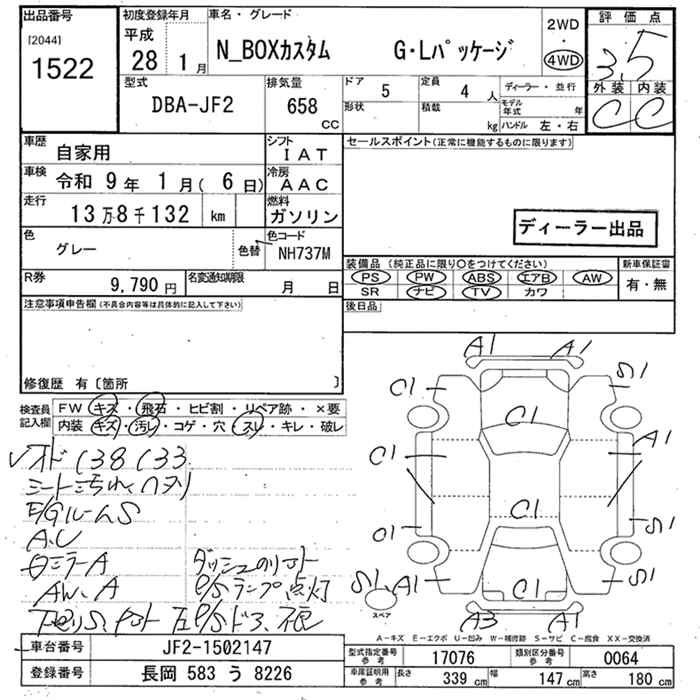 出品番号
[2044]
1522
初度登録年月
平成
28 1月
車名・グレード
N_BOXカスタム G・Lパッケージ
2WD
・
4WD
評価点
3.5
外装 内装
C C
型式
DBA-JF2
排気量
658
cc
ドア 5
形状
定員 4 人
積載 kg
ディーラー・並行
モデル年式 年
ハンドル 左・右
車歴 自家用
車検 令和 9年 1月( 6日)
走行 13万8千132 km
シフト IAT
冷房 AAC
燃料 ガソリン
色 グレー
色替
色コード NH737M
R券 9,790円
名変通知期限 月 日
セールスポイント(正常に機能するものに限ります)
ディーラー出品
装備品 (純正品に限り〇をつけてください)
PS PW ABS エアB AW
SR ナビ TV カワ
新車保証書
有・無
後日品
注意事項申告欄(不具合内容等は具体的に記入して下さい)
修復歴 有〔箇所 〕
検査員記入欄
FW キズ・飛石・ヒビ割・リペア跡・×要
内装 キズ・汚レ・コゲ・穴・スレ・キレ・破レ
シート汚れ ヘタリ
E/GルームS
A.U
AW.A
P/Sランプ点灯
A1 A1
C1 S1
C1
C1 A1
C1
C1 S1
C1
S1 A1 S1
A3 A1
スペア
A-キズ E-エクボ U-凹み W-補修跡 S-サビ C-腐食 XX-交換済
車台番号 JF2-1502147
登録番号 長岡 583 う 8226
型式指定番号 参考 17076
類別区分番号 参考 0064
車庫証明用 参考 長さ 339 cm 幅 147 cm 高さ 180 cm